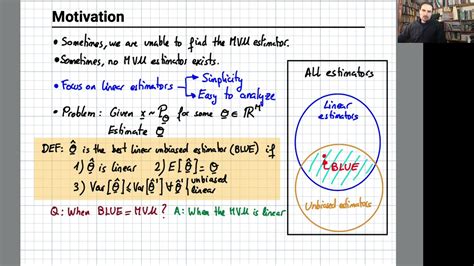 Motivation
• Sometimes, we are unable to find the MVU estimator.
• Sometimes, no MVU estimator exists.
• Focus on linear estimators → Simplicity
→ Easy to analyze
• Problem: Given x ~ P_θ for some θ ∈ ℝᴹ
Estimate θ
DEF: θ̂ is the best linear unbiased estimator (BLUE) if
1) θ̂ is linear 2) E[θ̂] = θ
3) Var[θ̂] ≤ Var[θ̂'] ∀ θ̂' unbiased
linear
Q: When BLUE = MVU? A: When the MVU is linear
All estimators
Linear
estimators
BLUE
Unbiased estimators